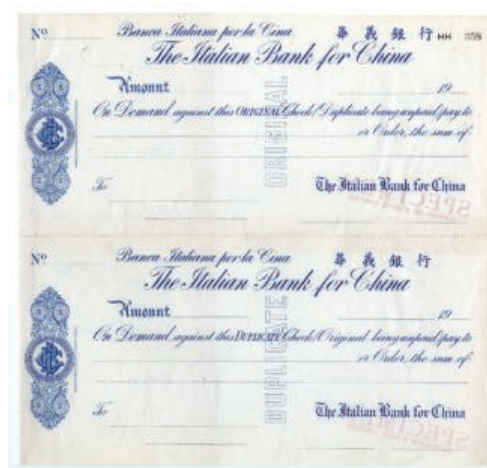 Nº Banca Italiana per la Cina 華義銀行 HH 358
The Italian Bank for China
Amount 19
On Demand against this ORIGINAL Check/Duplicate being unpaid/pay to
or Order, the sum of
ORIGINAL
To The Italian Bank for China
SPECIMEN
Nº Banca Italiana per la Cina 華義銀行
The Italian Bank for China
Amount 19
On Demand against this DUPLICATE Check/Original being unpaid/pay to
or Order, the sum of
DUPLICATE
To The Italian Bank for China
SPECIMEN